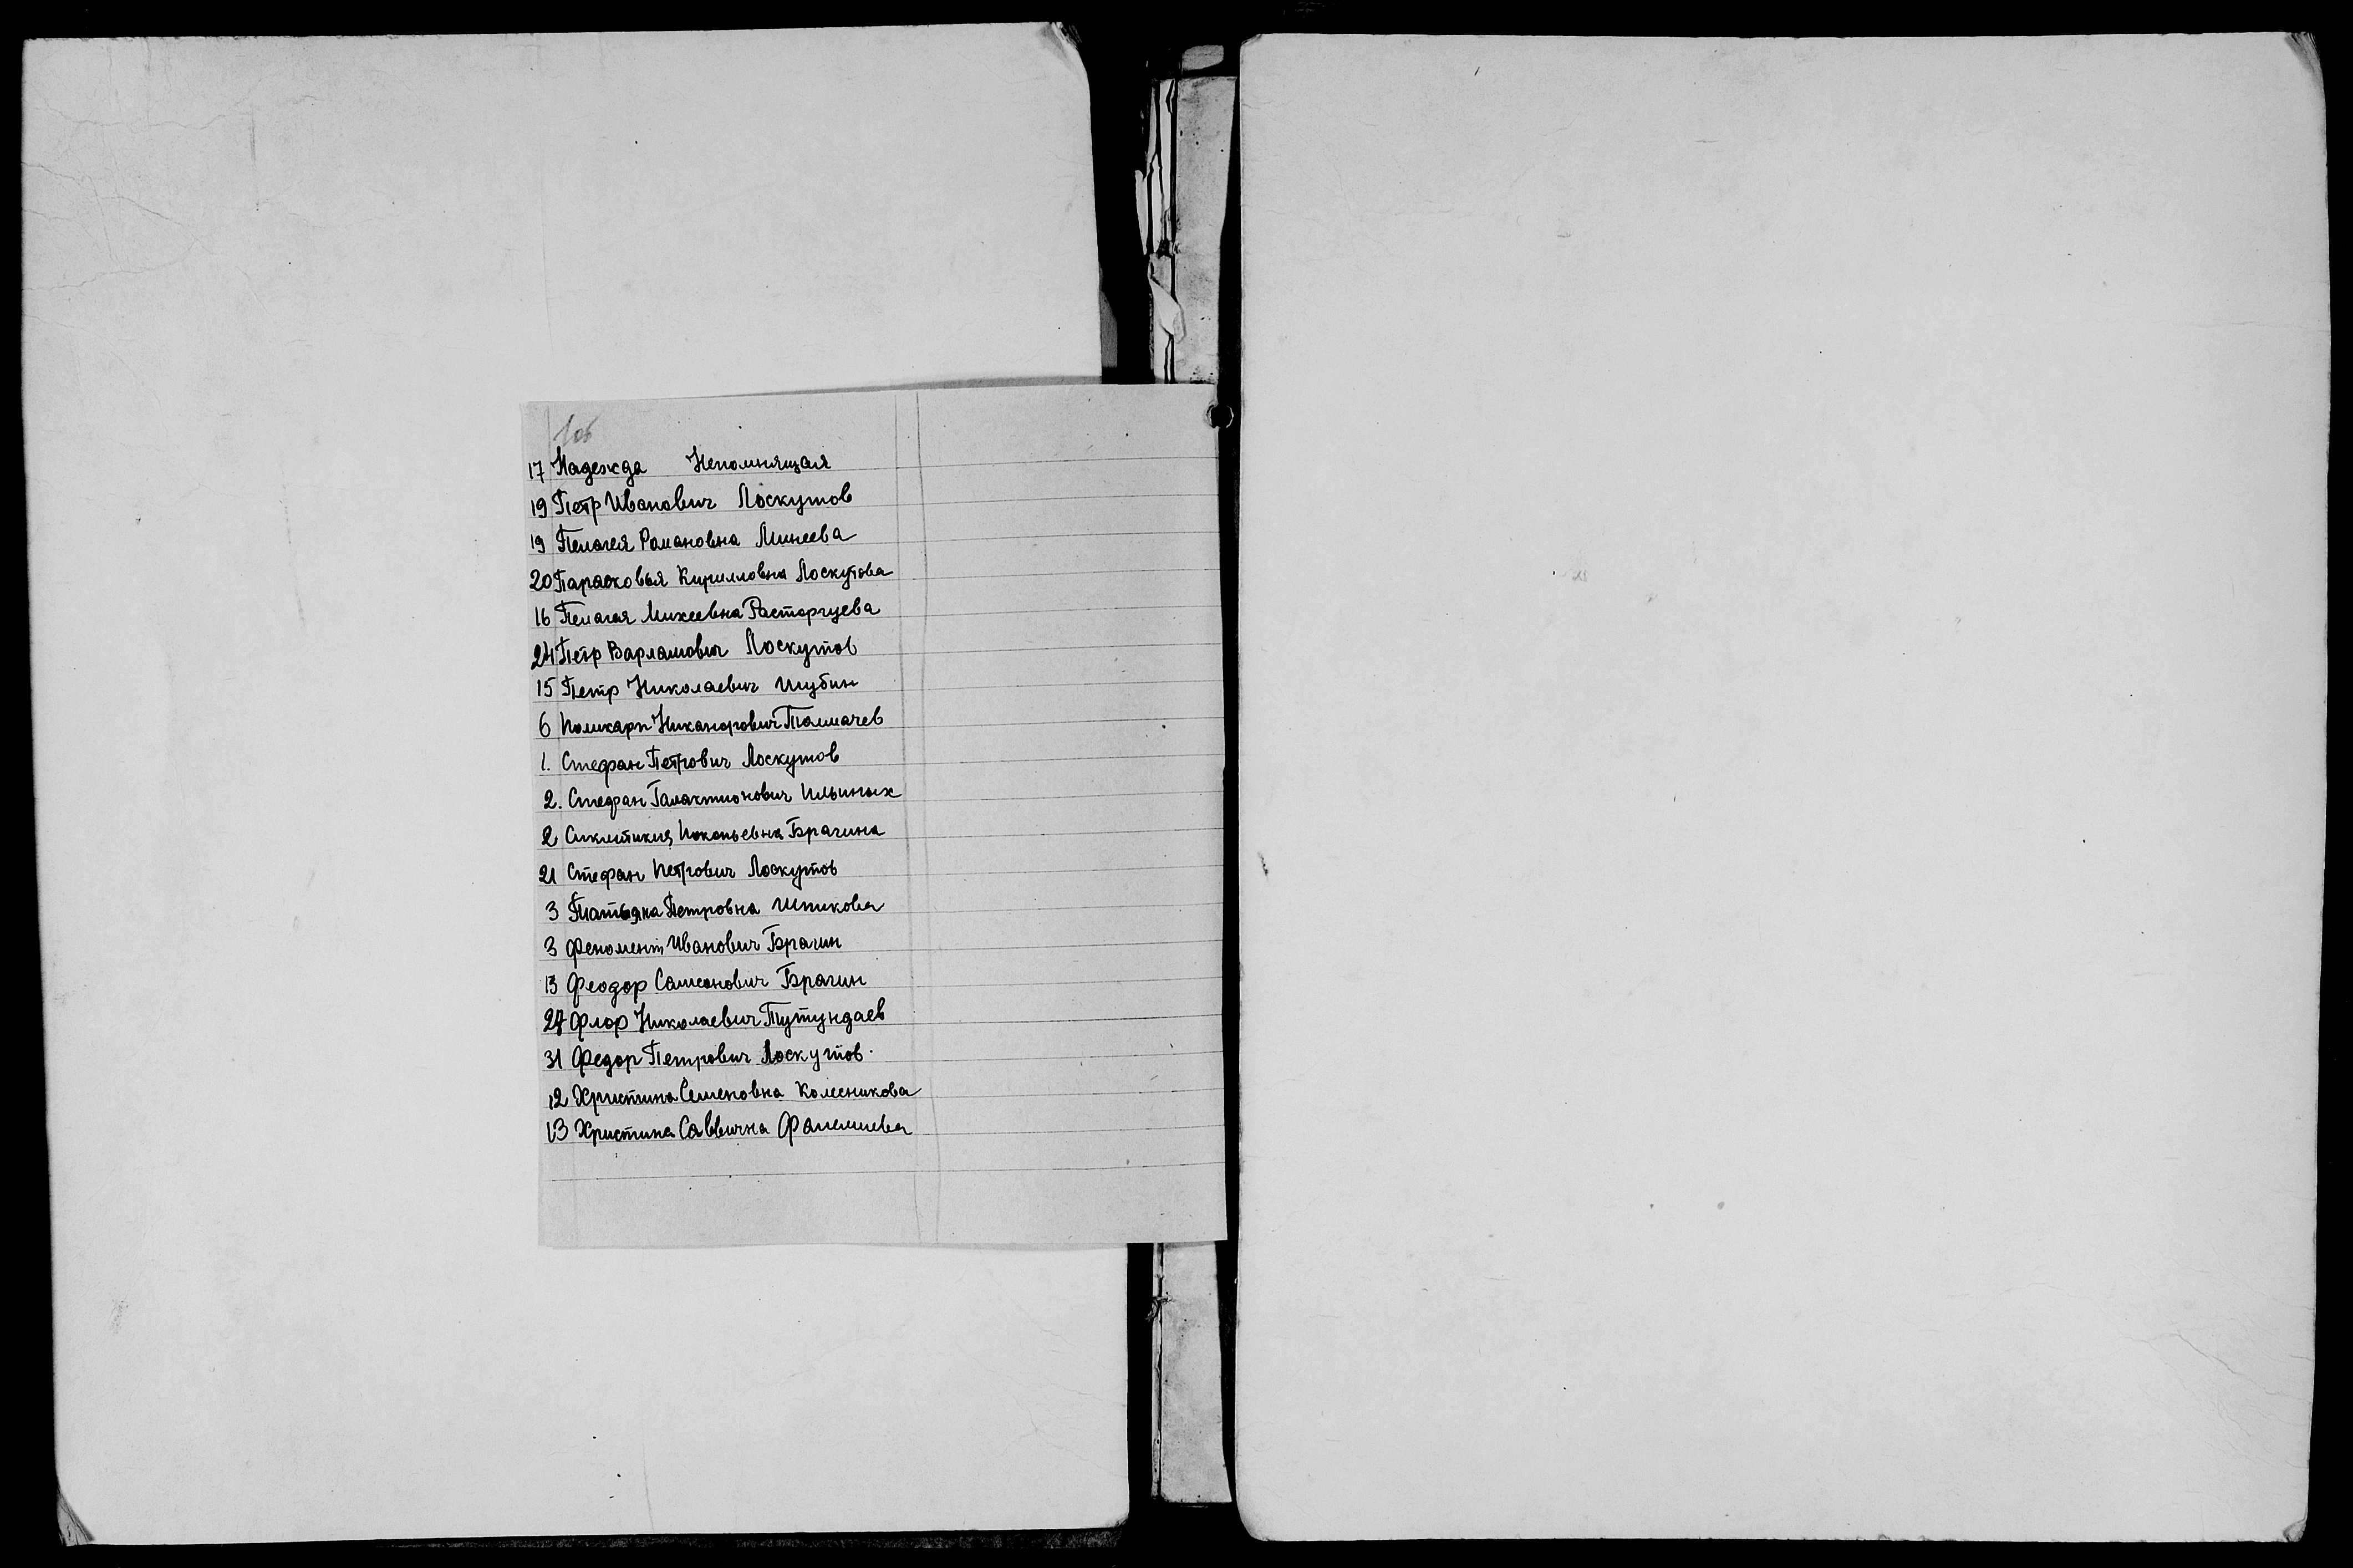 1об
17 Надежда Непомнящая
19 Петр Иванович Лоскутов
19 Пелагея Романовна Минеева
20 Парасковья Кирилловна Лоскутова
16 Пелагея Михеевна Расторгуева
24 Петр Варламович Лоскутов
15 Петр Николаевич Шубин
6 Поликарп Никанорович Толмачев
1. Стефан Петрович Лоскутов
2. Стефан Галактионович Ильиных
2 Сиклитикия Брагина
21 Стефан Петрович Лоскутов
3 Татьяна Петровна
3 Филомент Иванович Брагин
13 Феодор Самсонович Брагин
27 Флор Николаевич Тутундаев
31 Федор Петрович Лоскутов.
12 Христина Семеновна Колесникова
13 Христина Саввична